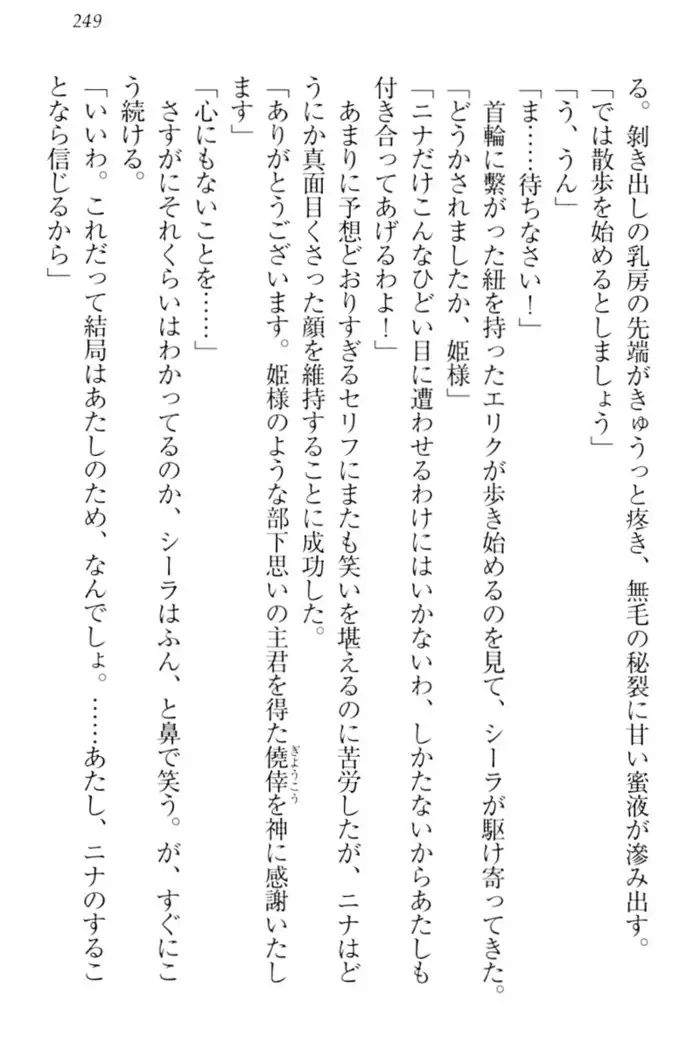 249
る。剝き出しの乳房の先端がきゅうっと疼き、無毛の秘裂に甘い蜜液が滲み出す。
「では散歩を始めるとしましょう」
「う、うん」
「ま……待ちなさい！」
首輪に繋がった紐を持ったエリクが歩き始めるのを見て、シーラが駆け寄ってきた。
「どうかされましたか、姫様」
「ニナだけこんなひどい目に遭わせるわけにはいかないわ、しかたないからあたしも
付き合ってあげるわよ！」
あまりに予想どおりすぎるセリフにまたも笑いを堪えるのに苦労したが、ニナはど
うにか真面目くさった顔を維持することに成功した。
「ありがとうございます。姫様のような部下思いの主君を得た僥倖ぎようこうを神に感謝いたし
ます」
「心にもないことを……」
さすがにそれくらいはわかってるのか、シーラはふん、と鼻で笑う。が、すぐにこ
う続ける。
「いいわ。これだって結局はあたしのため、なんでしょ。……あたし、ニナのするこ
となら信じるから」